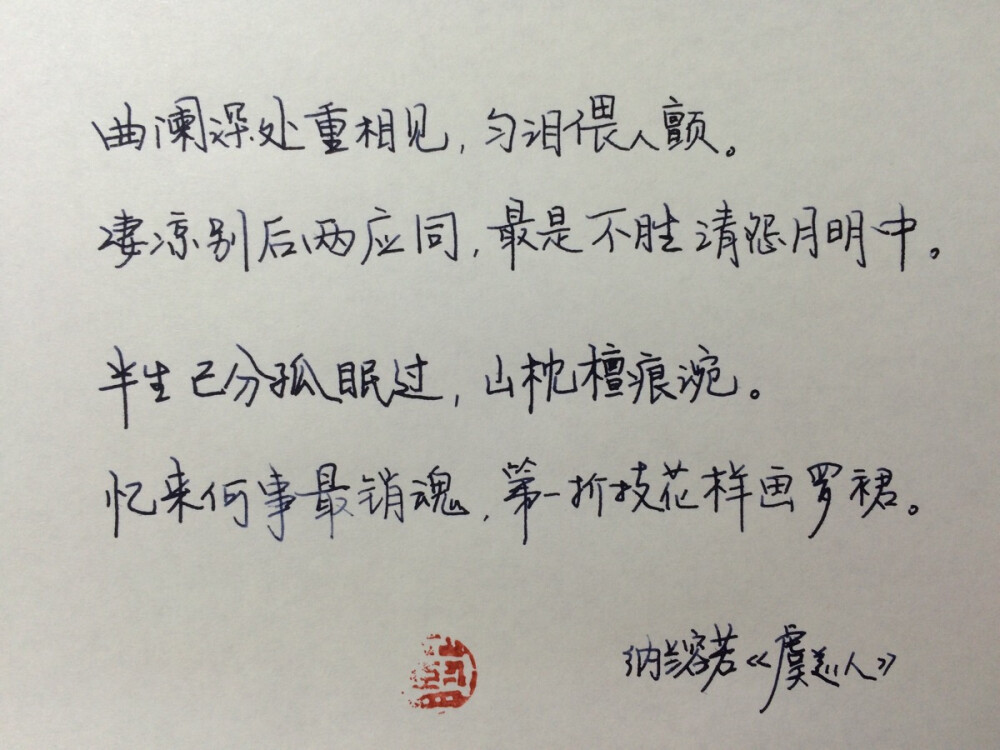 曲阑深处重相见，匀泪偎人颤。
凄凉别后两应同，最是不胜清怨月明中。
半生已分孤眠过，山枕檀痕涴。
忆来何事最销魂，第一折技花样画罗裙。
纳兰容若《虞美人》